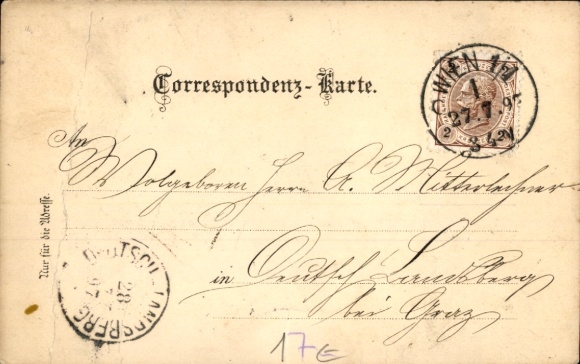 Correspondenz-Karte.
WIEN 1/1
1
27.7.97
2 3 4 N
An
Wolgeboren Herrn A. Mitterlechner
in Deutsch Landsberg
bei Graz
Nur für die Adresse.
DEUTSCH-LANDSBERG
28
97
17€